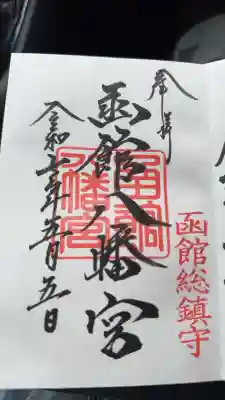 奉拝
函館総鎮守
函館八幡宮
令和七年五月五日